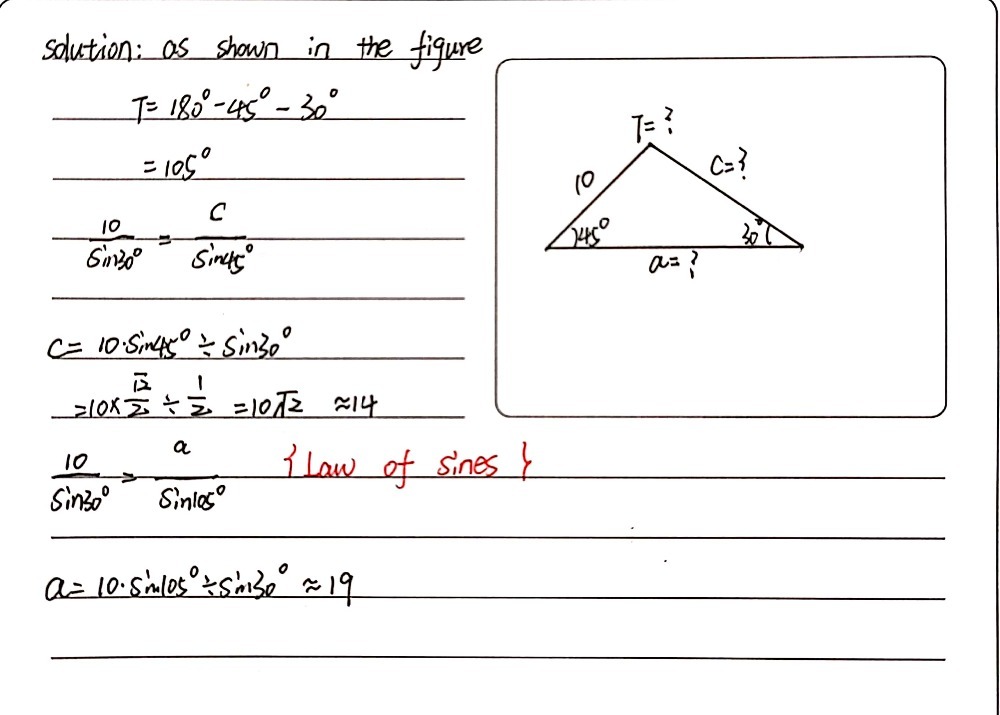 solution: as shown in the figure
T= 180°-45°-30°
= 105°
10/Sin30° = C/Sin45°
C= 10·Sin45° ÷ Sin30°
=10×√2/2 ÷ 1/2 =10√2 ≈14
10/Sin30° = a/Sin105° {Law of sines}
a= 10·Sin105°÷Sin30° ≈19
T= ?
10
C=?
45°
30°
a= ?